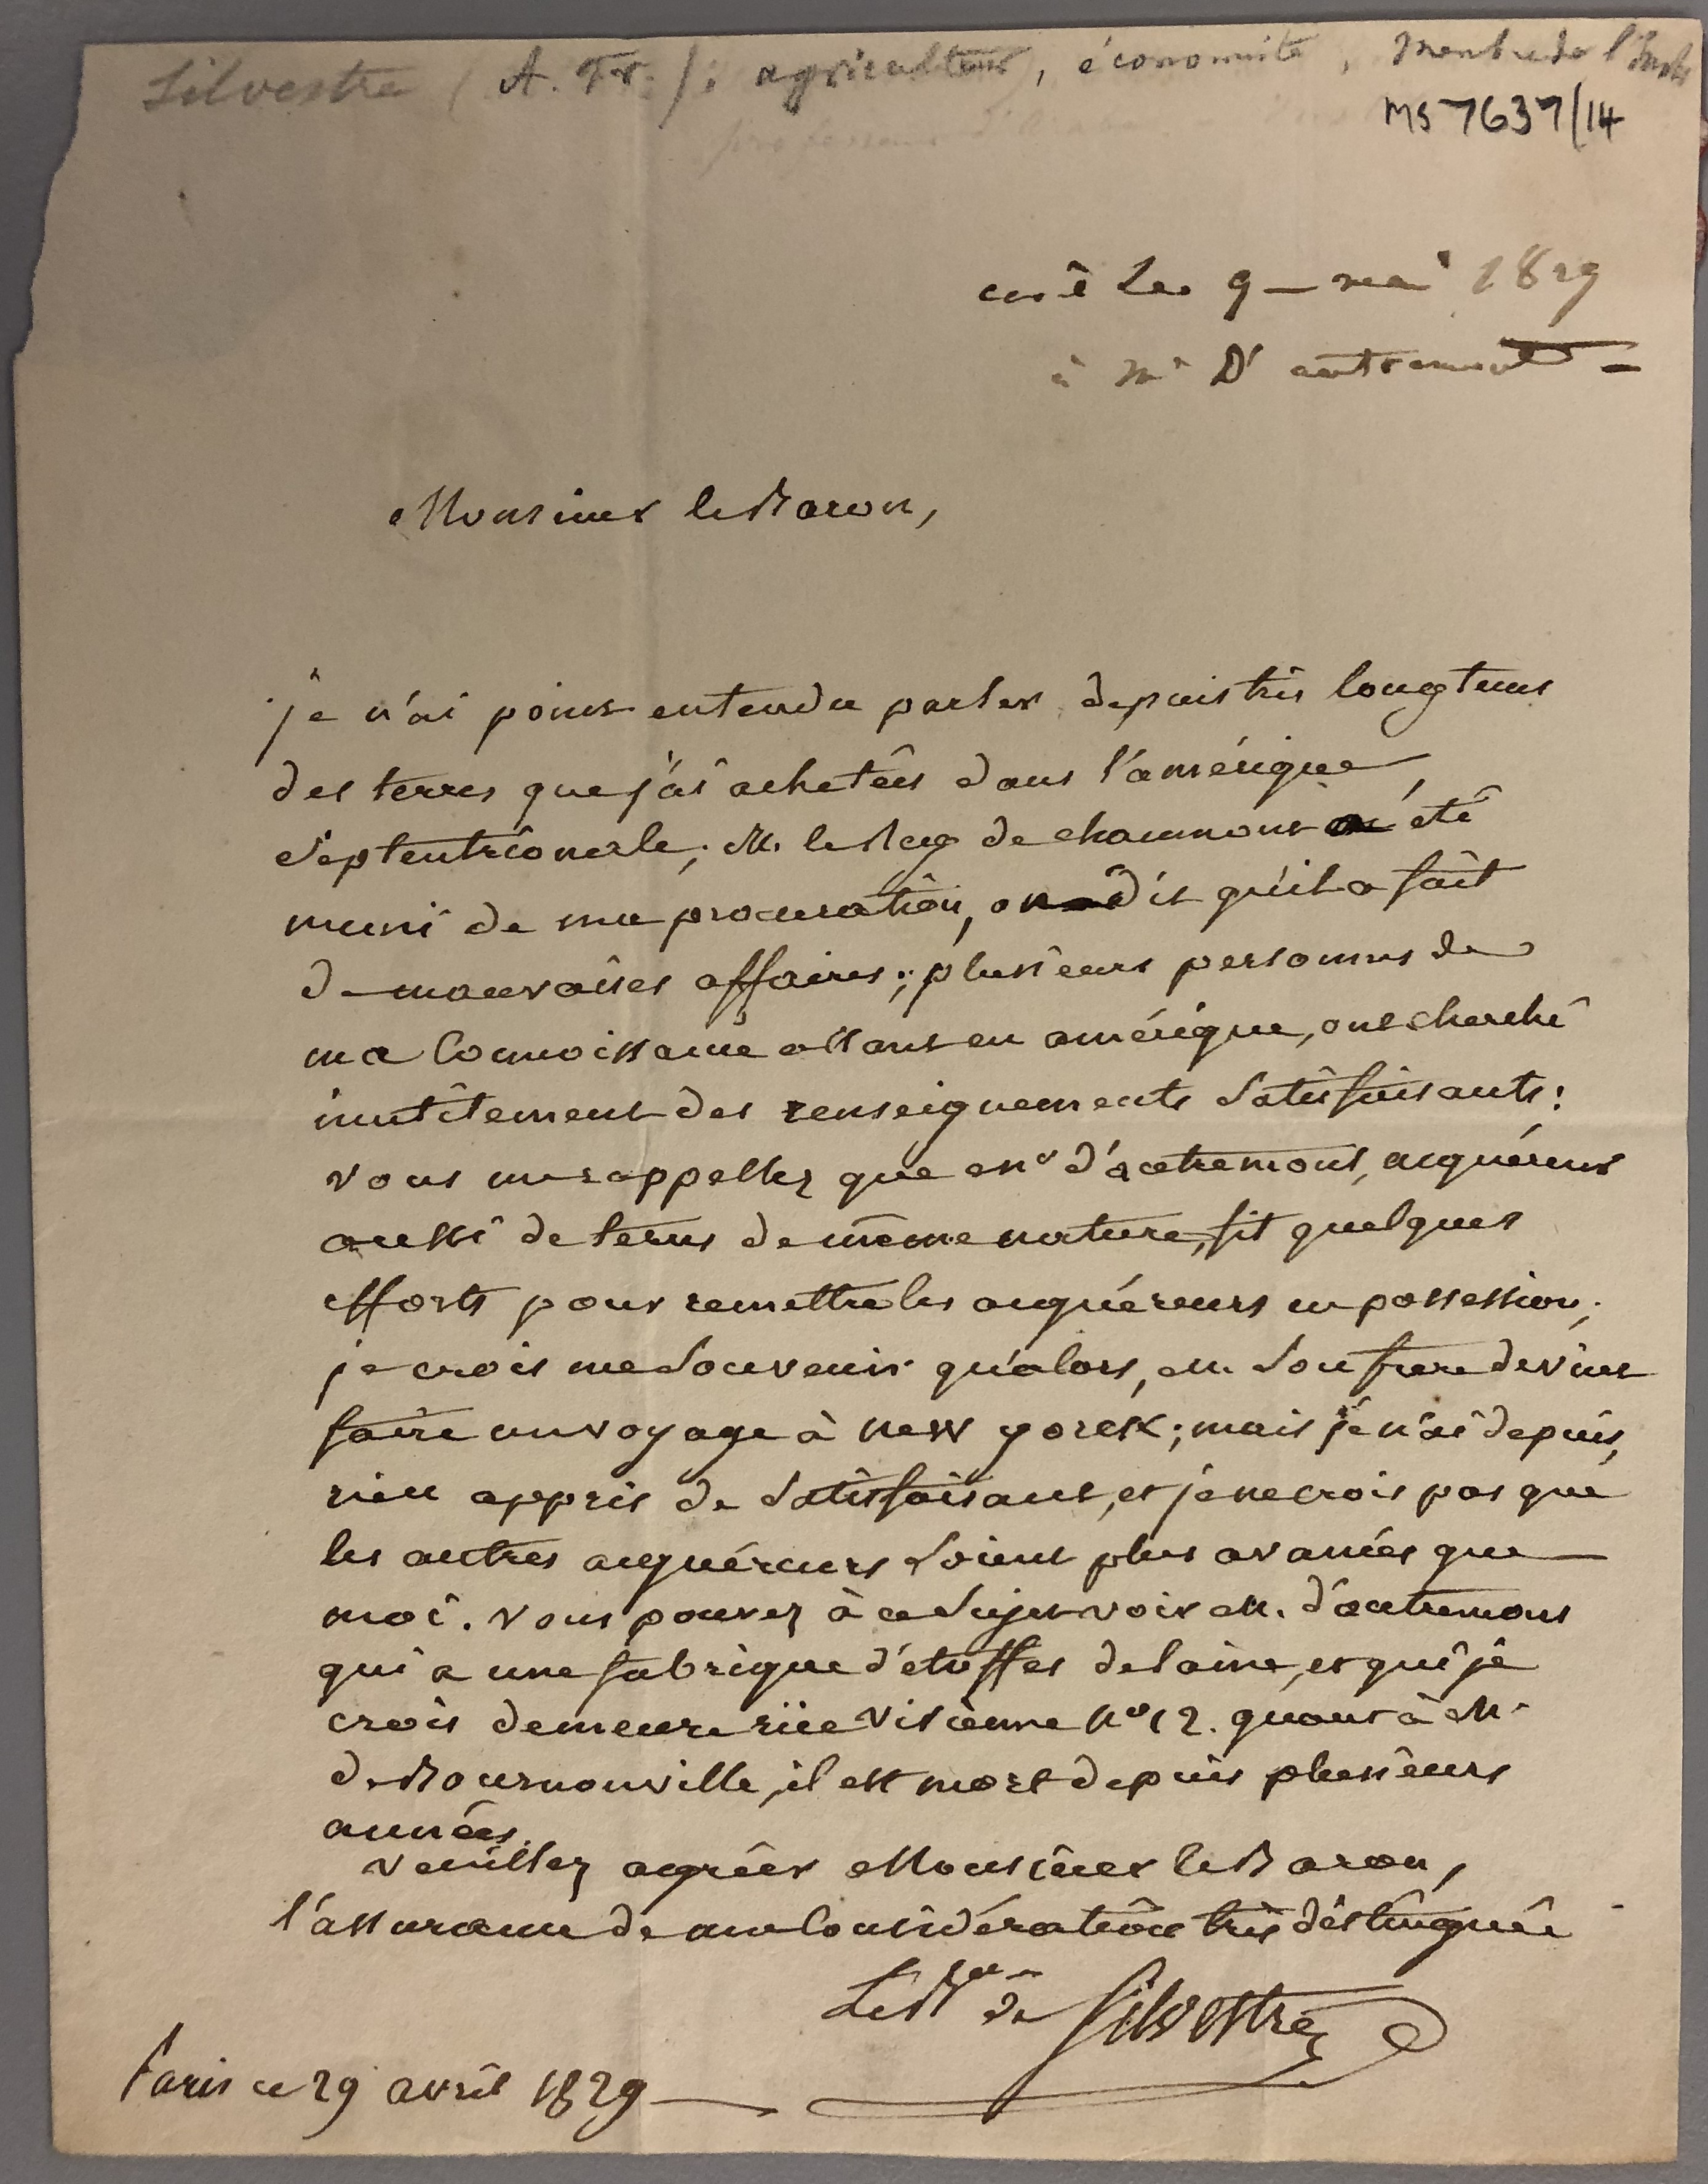 Silvestre (A. Fr.) : agriculteur, économiste, Membre de l'Inst
MS 7637/14
professeur
écrit Le 9 - mai 1829
à Mr D'autremont -
Monsieur le Baron,
je n'ai point entendu parler depuis très longtems
des terres que j'ai achetées dans l'amérique
septentrionale; M. le Ray de chaumont a été
muni de ma procuration, on dit qu'il a fait
de mauvaises affaires; plusieurs personnes de
ma Connoissance allant en amérique, ont cherché
inutilement des renseignements satisfaisants:
vous me rappellez que Mr d'autremont, acquéreur
aussi de terres de même nature, fit quelques
efforts pour remettre les acquéreurs en possession;
je crois me souvenir qu'alors, M. son frere devint
faire un voyage à new yorck; mais je n'ai depuis,
rien appris de satisfaisant, et je ne crois pas que
les autres acquéreurs soient plus avancés que
moi. vous pouvez à ce sujet voir M. d'autremont
qui a une fabrique d'étoffes de laine, et qui je
crois demeure rüe Visienne no 12. quant à Mr
de Bournonville, il est mort depuis plusieurs
années.
veuillez agréer Monsieur le Baron,
l'assurance de ma Considération très distinguée
Le Bon de Silvestre
Paris ce 29 avril 1829